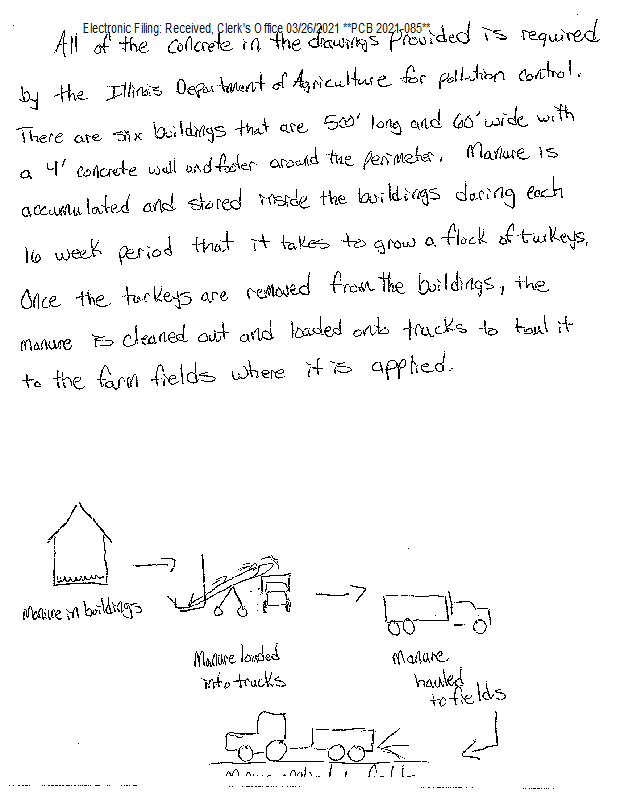 Electronic Filing: Received, Clerk's Office 03/26/2021 **PCB 2021-085**
All of the concrete in the drawings provided is required
by the Illinois Department of Agriculture for pollution control.
There are six buildings that are 500' long and 60' wide with
a 4' concrete wall and footer around the perimeter. Manure is
accumulated and stored inside the buildings during each
16 week period that it takes to grow a flock of turkeys.
Once the turkeys are removed from the buildings, the
manure is cleaned out and loaded onto trucks to haul it
to the farm fields where it is applied.
Manure in buildings
Manure loaded
into trucks
Manure
hauled
to fields